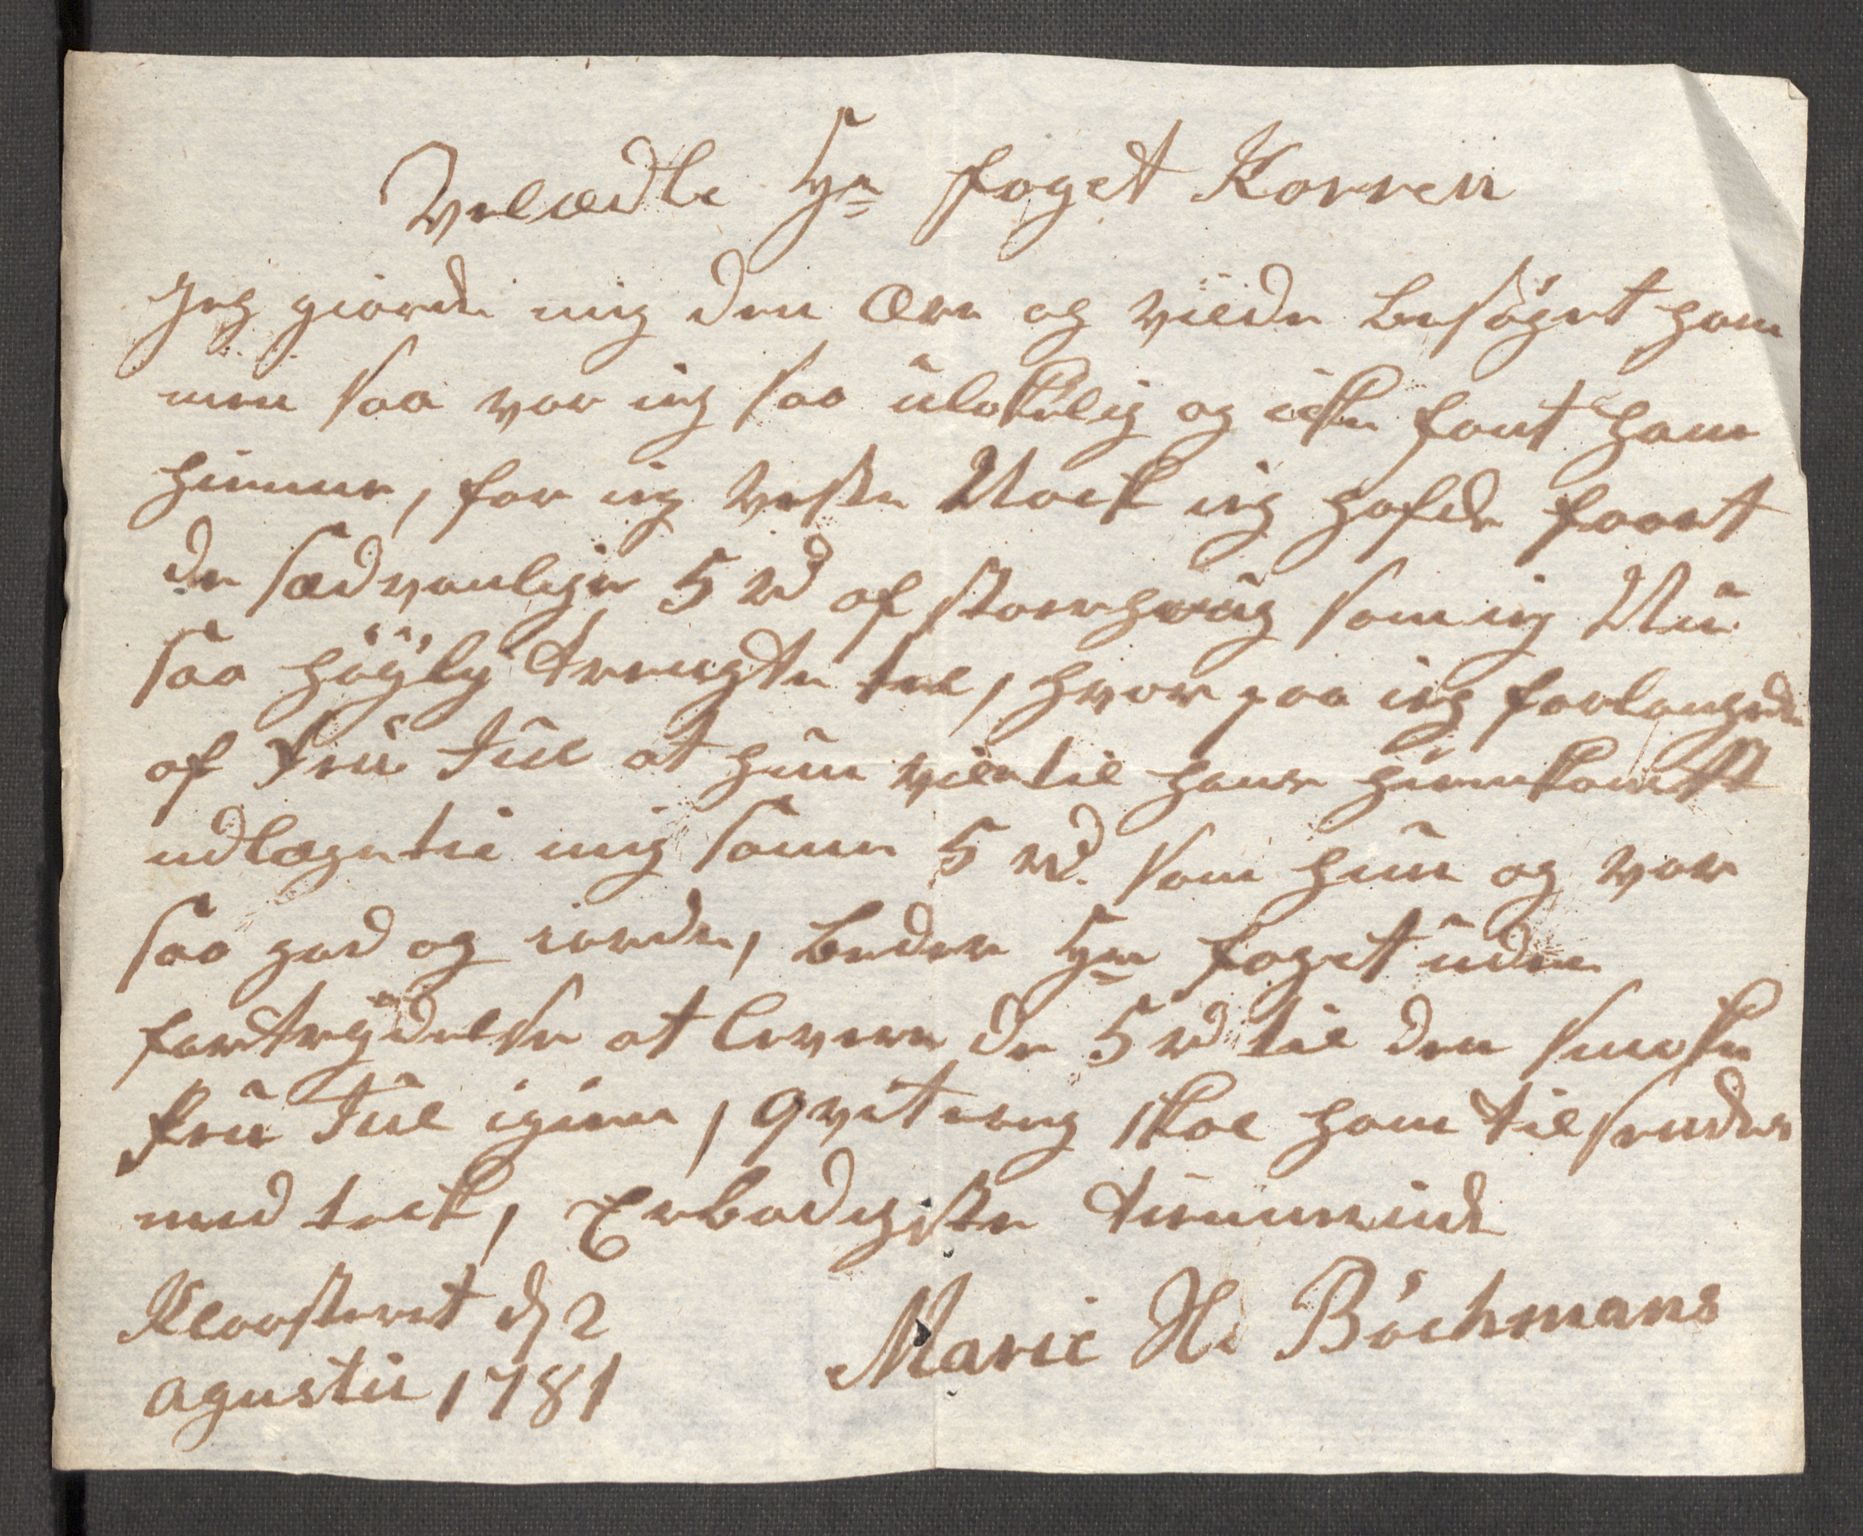 Velædle Hr foget Korren
Jeg giorde mig den Ære og vilde besøget ham
men saa var ieg saa ulökelig og icke fant ham
hiemme, for ieg veste Nock ieg hafde faaet
de sædvanlige 5 rd af Storhoug som ieg Nu
saa höÿlig trengte til, hvor paa ieg forlangede
af Fru Iul at hun vilde til hans hiemkomst
udlæge til mig samme 5 rd. som hun og var
saa god og iorde, beder Hr foget uden
fortrydelse at levere de 5 rd til den smoke
Fru Iul igien, qvitering skal ham tilsendes
med tack, Erbødigste tienerinde
Kloosteret d 2
agustii 1781
Marie H. Böchmans